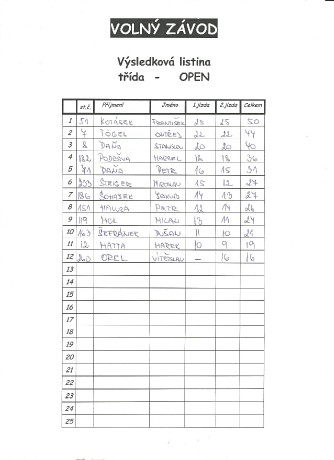 VOLNÝ ZÁVOD
Výsledková listina
třída - OPEN
st.č. Příjmení Jméno 1.jízda 2.jízda Celkem
1 51 KOTÁSEK FRANTIŠEK 25 25 50
2 7 FOGEL ONDŘEJ 22 22 44
3 8 DAŇO STANISLAV 20 20 40
4 182 PODEŠVA MARCEL 18 18 36
5 71 DAŇO PETR 16 15 31
6 233 15 12 27
7 186 13 14 27
8 151 PETR 12 14 26
9 119 MILAN 13 11 24
10 163 ŠTEFÁNEK DUŠAN 11 10 21
11 12 MATTA MAREK 10 9 19
12 260 OREL VÍTĚSLAV - 16 16
13
14
15
16
17
18
19
20
21
22
23
24
25